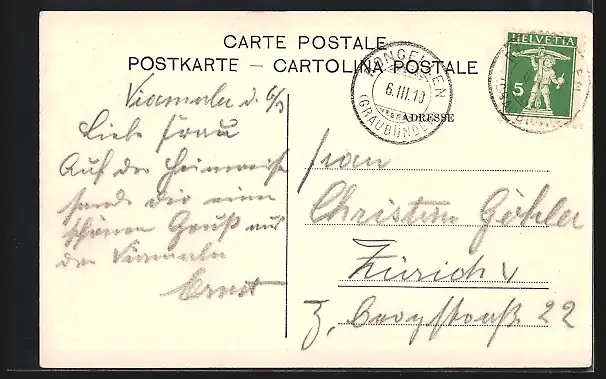 CARTE POSTALE
POSTKARTE — CARTOLINA POSTALE
RONGELLEN
6.III.10
(GRAUBÜNDEN)
HELVETIA
5
ADRESSE
Viamala d. 6/3
Liebe Frau
Auf der Heimreise
sende Dir einen
schönen Gruß aus
der Viamala
Ernst
Frau
Christen Göhler
Zürich V
22